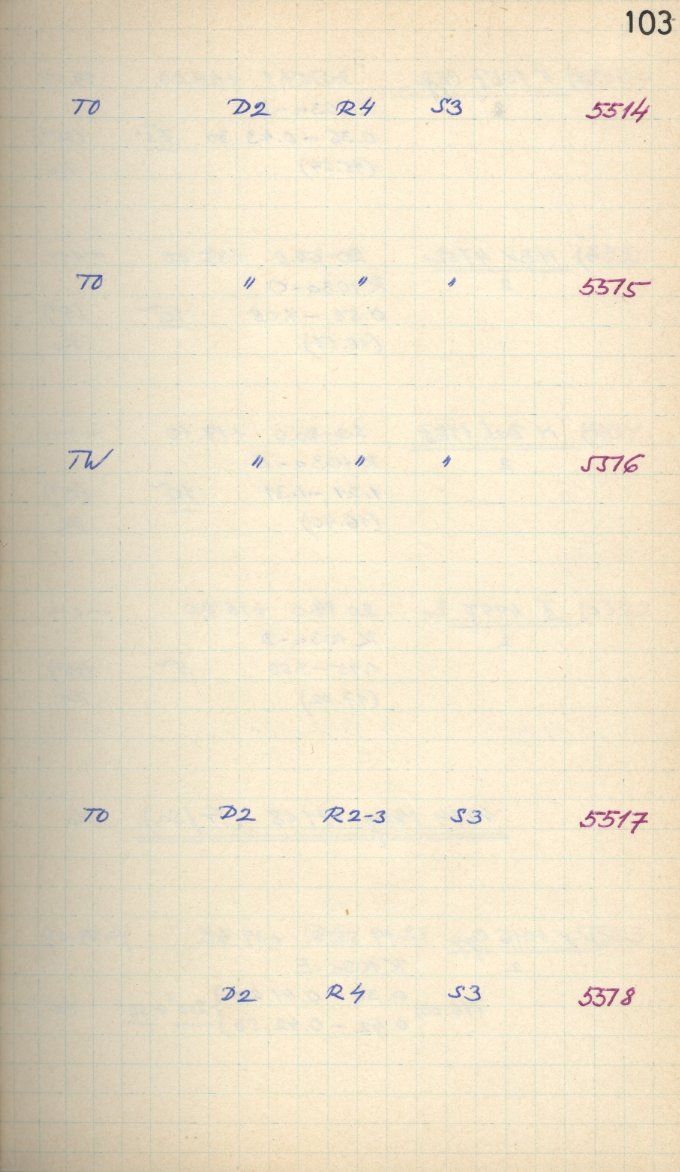 103
TO D2 R4 S3 5514
TO " " " 5515
TW " " " 5516
TO D2 R2-3 S3 5517
D2 R4 S3 5518